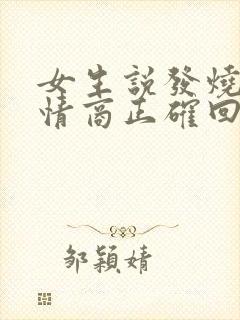 女生説發燒
情商正確回
邹穎婧